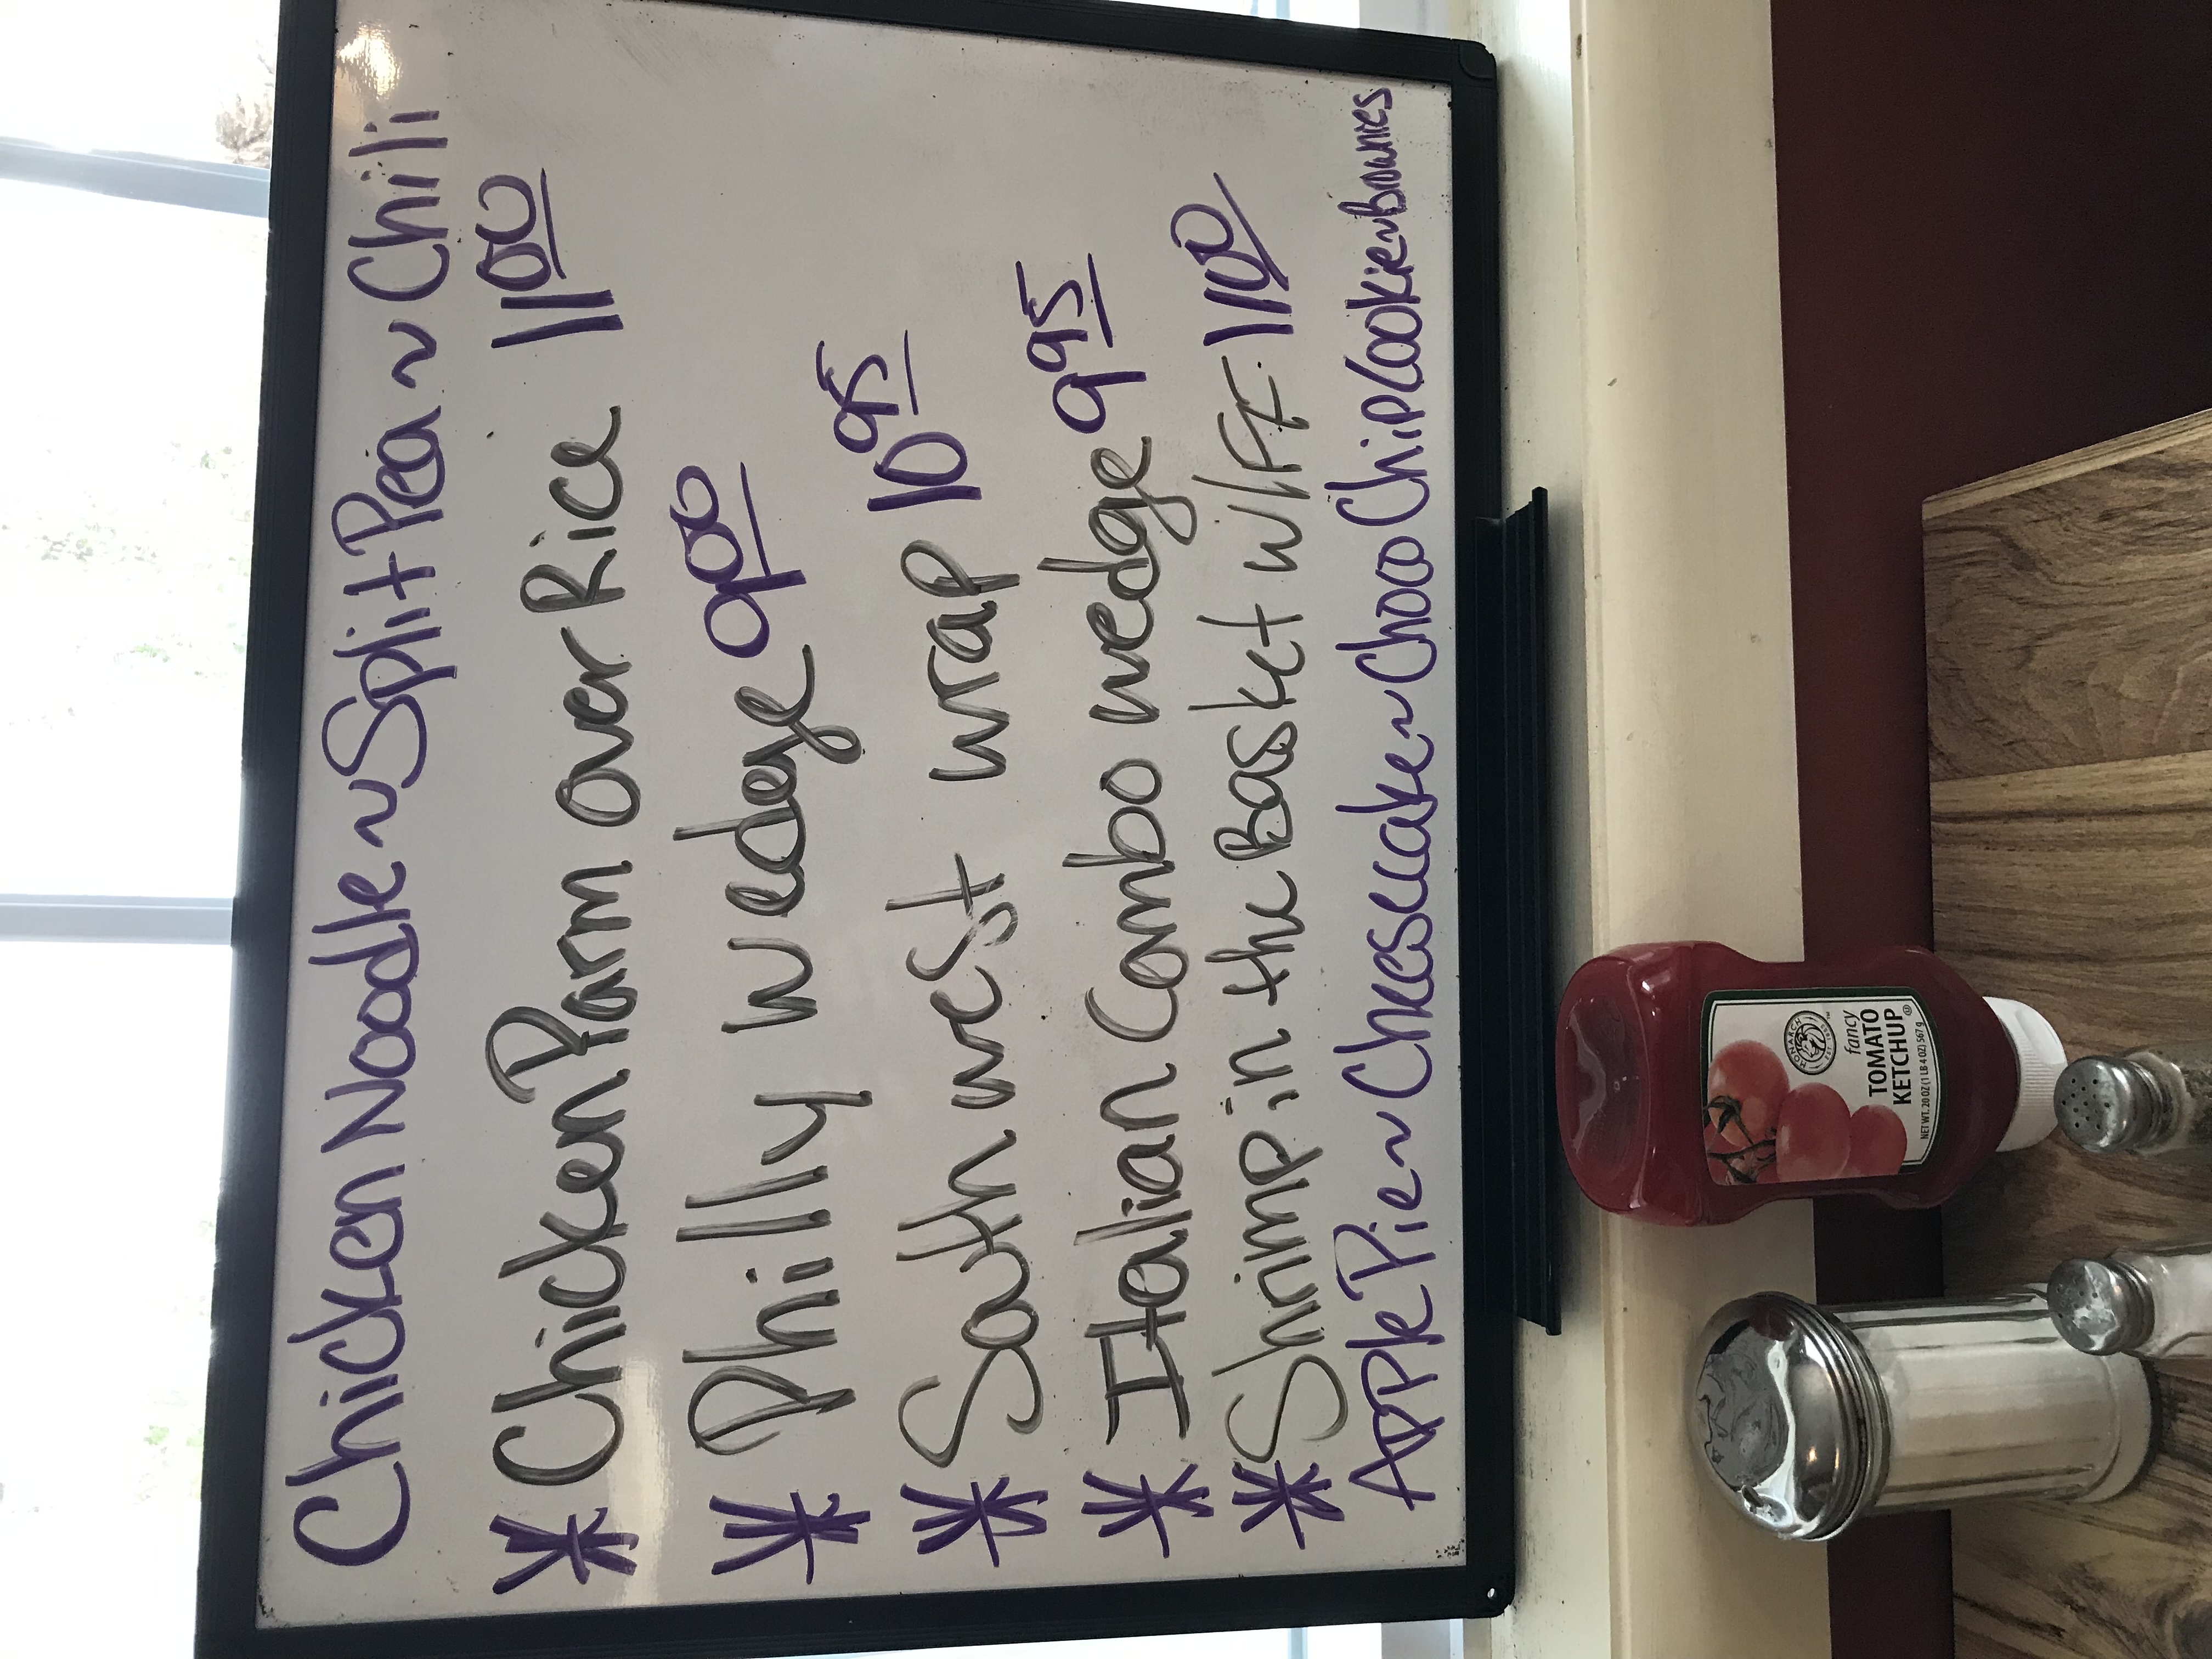 Chicken Noodle ~ Split Pea ~ Chili
* Chicken Parm over Rice 11 00
* Philly wedge 9 00
* South west wrap 10 95
* Italian Combo wedge 9 95
* Shrimp in the Basket w/FF. 11 00
Apple Pie ~ Cheesecake ~ Choco Chip Cookie ~ Brownies
MONARCH
EST. 1853
fancy
TOMATO
KETCHUP
NET WT. 20 OZ (1 LB 4 OZ) 567 g